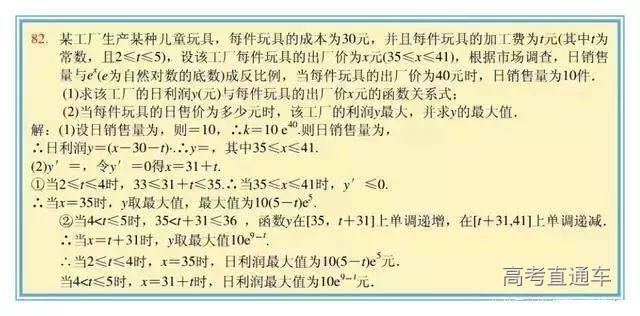 82. 某工厂生产某种儿童玩具，每件玩具的成本为30元，并且每件玩具的加工费为t元(其中t为
常数，且2≤t≤5)，设该工厂每件玩具的出厂价为x元(35≤x≤41)，根据市场调查，日销售
量与eˣ(e为自然对数的底数)成反比例，当每件玩具的出厂价为40元时，日销售量为10件．
(1)求该工厂的日利润y(元)与每件玩具的出厂价x元的函数关系式；
(2)当每件玩具的日售价为多少元时，该工厂的利润y最大，并求y的最大值．
解：(1)设日销售量为，则=10，∴k=10 e⁴⁰.则日销售量为，
∴日利润y=(x−30−t)·.∴y=，其中35≤x≤41.
(2)y′=，令y′=0得x=31+t.
①当2≤t≤4时，33≤31+t≤35.∴当35≤x≤41时，y′≤0.
∴当x=35时，y取最大值，最大值为10(5−t)e⁵.
②当4<t≤5时，35<t+31≤36，函数y在[35，t+31]上单调递增，在[t+31,41]上单调递减．
∴当x=t+31时，y取最大值10e⁹⁻ᵗ.
∴当2≤t≤4时，x=35时，日利润最大值为10(5−t)e⁵元．
当4<t≤5时，x=31+t时，日利润最大值为10e⁹⁻ᵗ元．
高考直通车